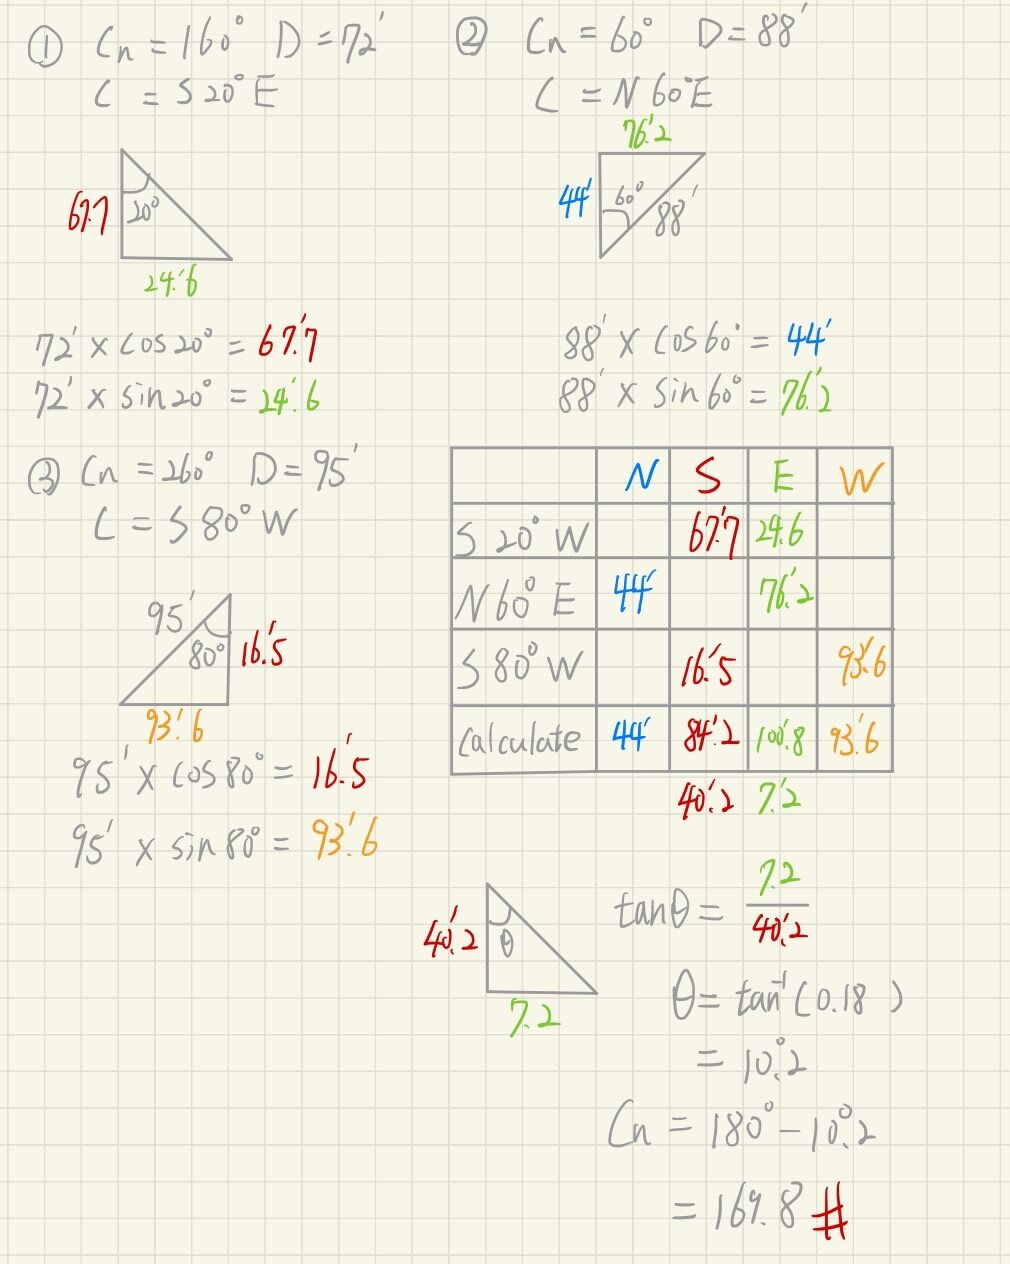 ① Cn = 160° D = 72'
C = S 20° E
67.7
20°
24.'6
72' × cos 20° = 67.'7
72' × sin 20° = 24.'6
② Cn = 60° D = 88'
C = N 60° E
76.'2
44'
60°
88'
88' × cos 60° = 44'
88' × sin 60° = 76.'2
③ Cn = 260° D = 95'
C = S 80° W
95'
80°
16.'5
93.'6
95' × cos 80° = 16.'5
95' × sin 80° = 93.'6
N S E W
S 20° W 67.'7 24.'6
N 60° E 44' 76.'2
S 80° W 16.'5 93.'6
Calculate 44' 84.'2 100.'8 93.'6
40.'2 7.'2
40.'2
θ
7.2
tanθ = 7.2 / 40.'2
θ = tan⁻¹ (0.18 )
= 10.°2
Cn = 180° - 10.°2
= 169.8 #